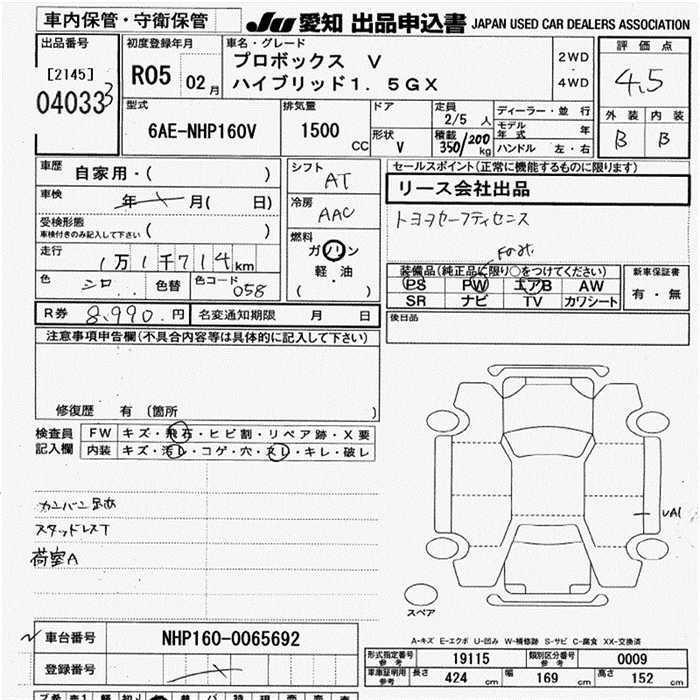 車内保管・守衛保管
JU 愛知 出品申込書 JAPAN USED CAR DEALERS ASSOCIATION
出品番号
[2145]
040333
初度登録年月
R05 02月
車名・グレード
プロボックス V
ハイブリッド1.5GX
2WD
・
4WD
評価点
4.5
外装 内装
B B
型式
6AE-NHP160V
排気量
1500 CC
ドア
形状
V
定員
2/5 人
積載
350/200 kg
ディーラー・並行
モデル年式 年
ハンドル 左・右
車歴
自家用・( )
車検
年 月( 日)
受検形態
車検付きのみ記入して下さい ( )
走行
1万1千714km
色
シロ
色替
色コード
058
シフト
AT
冷房
AAC
燃料
ガソリン
軽・油
( )
セールスポイント(正常に機能するものに限ります)
リース会社出品
トヨタセーフティセンス
装備品(純正品に限り○をつけてください)
PS PW エアB AW
SR ナビ TV カワシート
新車保証書
有・無
R券 8,990.円
名変通知期限 月 日
後日品
注意事項申告欄(不具合内容等は具体的に記入して下さい)
修復歴 有 (箇所 )
検査員
記入欄
FW キズ・飛石・ヒビ割・リペア跡・X要
内装 キズ・汚レ・コゲ・穴・スレ・キレ・破レ
カンバン
スタッドレスT
荷室A
UA1
スペア
A-キズ E-エクボ U-凹み W-補修跡 S-サビ C-腐食 XX-交換済
車台番号 NHP160-0065692
登録番号
形式指定番号
参考
19115
類別区分番号
参考
0009
車庫証明用
参考
長さ 424 cm 幅 169 cm 高さ 152 cm